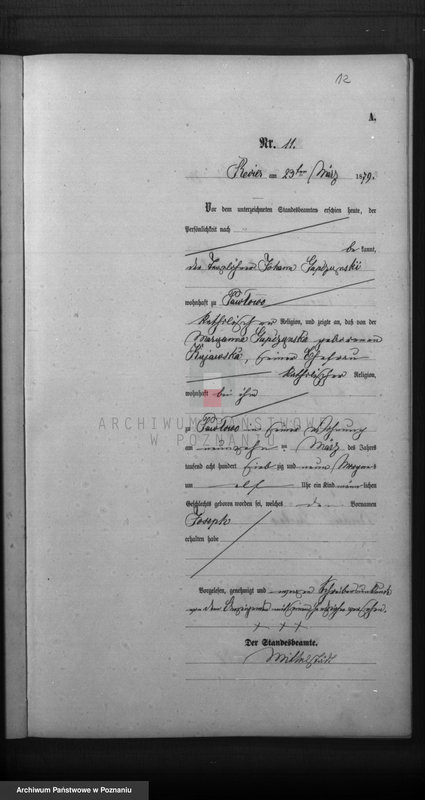 12
A.
Nr. 11.
Revier am 23ten März 1879.
Vor dem unterzeichneten Standesbeamten erschien heute, der
Persönlichkeit nach
be kannt,
der Tagelöhner Johann
wohnhaft zu Pawlowo
katholischer Religion, und zeigte an, daß von der
Maryanna geborenen
Kujawska, seiner Ehefrau
katholischer Religion,
wohnhaft bei ihm
ARCHIWUM PAŃSTWOWE
W POZNANIU
zu Pawlowo in seiner Wohnung
am neunzehn ten März des Jahres
tausend acht hundert sieb zig und neun Morgens
um elf Uhr ein Kind männ lichen
Geschlechts geboren worden sei, welches den Vornamen
Joseph
erhalten habe
Vorgelesen, genehmigt und wegen Schreibensunkunde
von dem Anzeigenden mit seinem Handzeichen versehen.
+ + +
Der Standesbeamte.
Archiwum Państwowe w Poznaniu